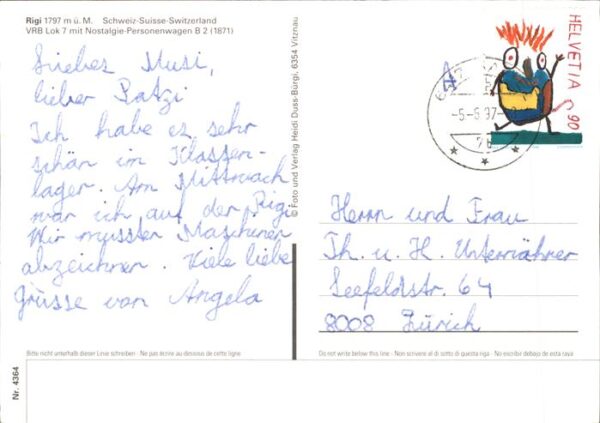 Rigi 1797 m ü. M. Schweiz-Suisse-Switzerland
VRB Lok 7 mit Nostalgie-Personenwagen B 2 (1871)
Liebes Musi,
lieber Batzi
Ich habe es sehr
schön im Klassen-
lager. Am Mittwoch
war ich auf der Rigi.
Wir mussten Maschinen
abzeichnen. Viele liebe
Grüsse von Angela
Bitte nicht unterhalb dieser Linie schreiben · Ne pas écrire au dessous de cette ligne
Nr. 4364
© Foto und Verlag Heidi Duss-Bürgi, 6354 Vitznau
HELVETIA 90
-5.-6.97-
Herrn und Frau
Th. u. H. Unternährer
Seefeldstr. 64
8008 Zürich
Do not write below this line · Non scrivere al di sotto di questa riga · No escribir debajo de esta raya